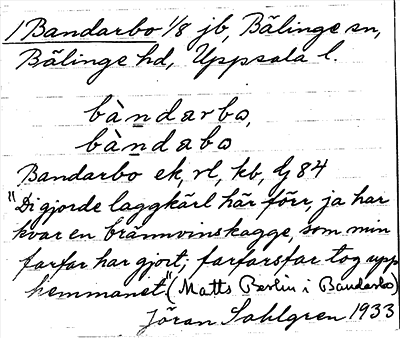 1 Bandarbo 1/8 jb, Bälinge sn,
Bälinge hd, Uppsala l.
bàndarbo,
bàndabo
Bandarbo ek, rl, kb, dj 84
"Di gjorde laggkärl här förr, ja har
kvar en brännvinskagge, som min
farfar har gjort; farfarsfar tog upp
hemmanet." (Matts Berlin i Bandarbo)
Jöran Sahlgren 1933